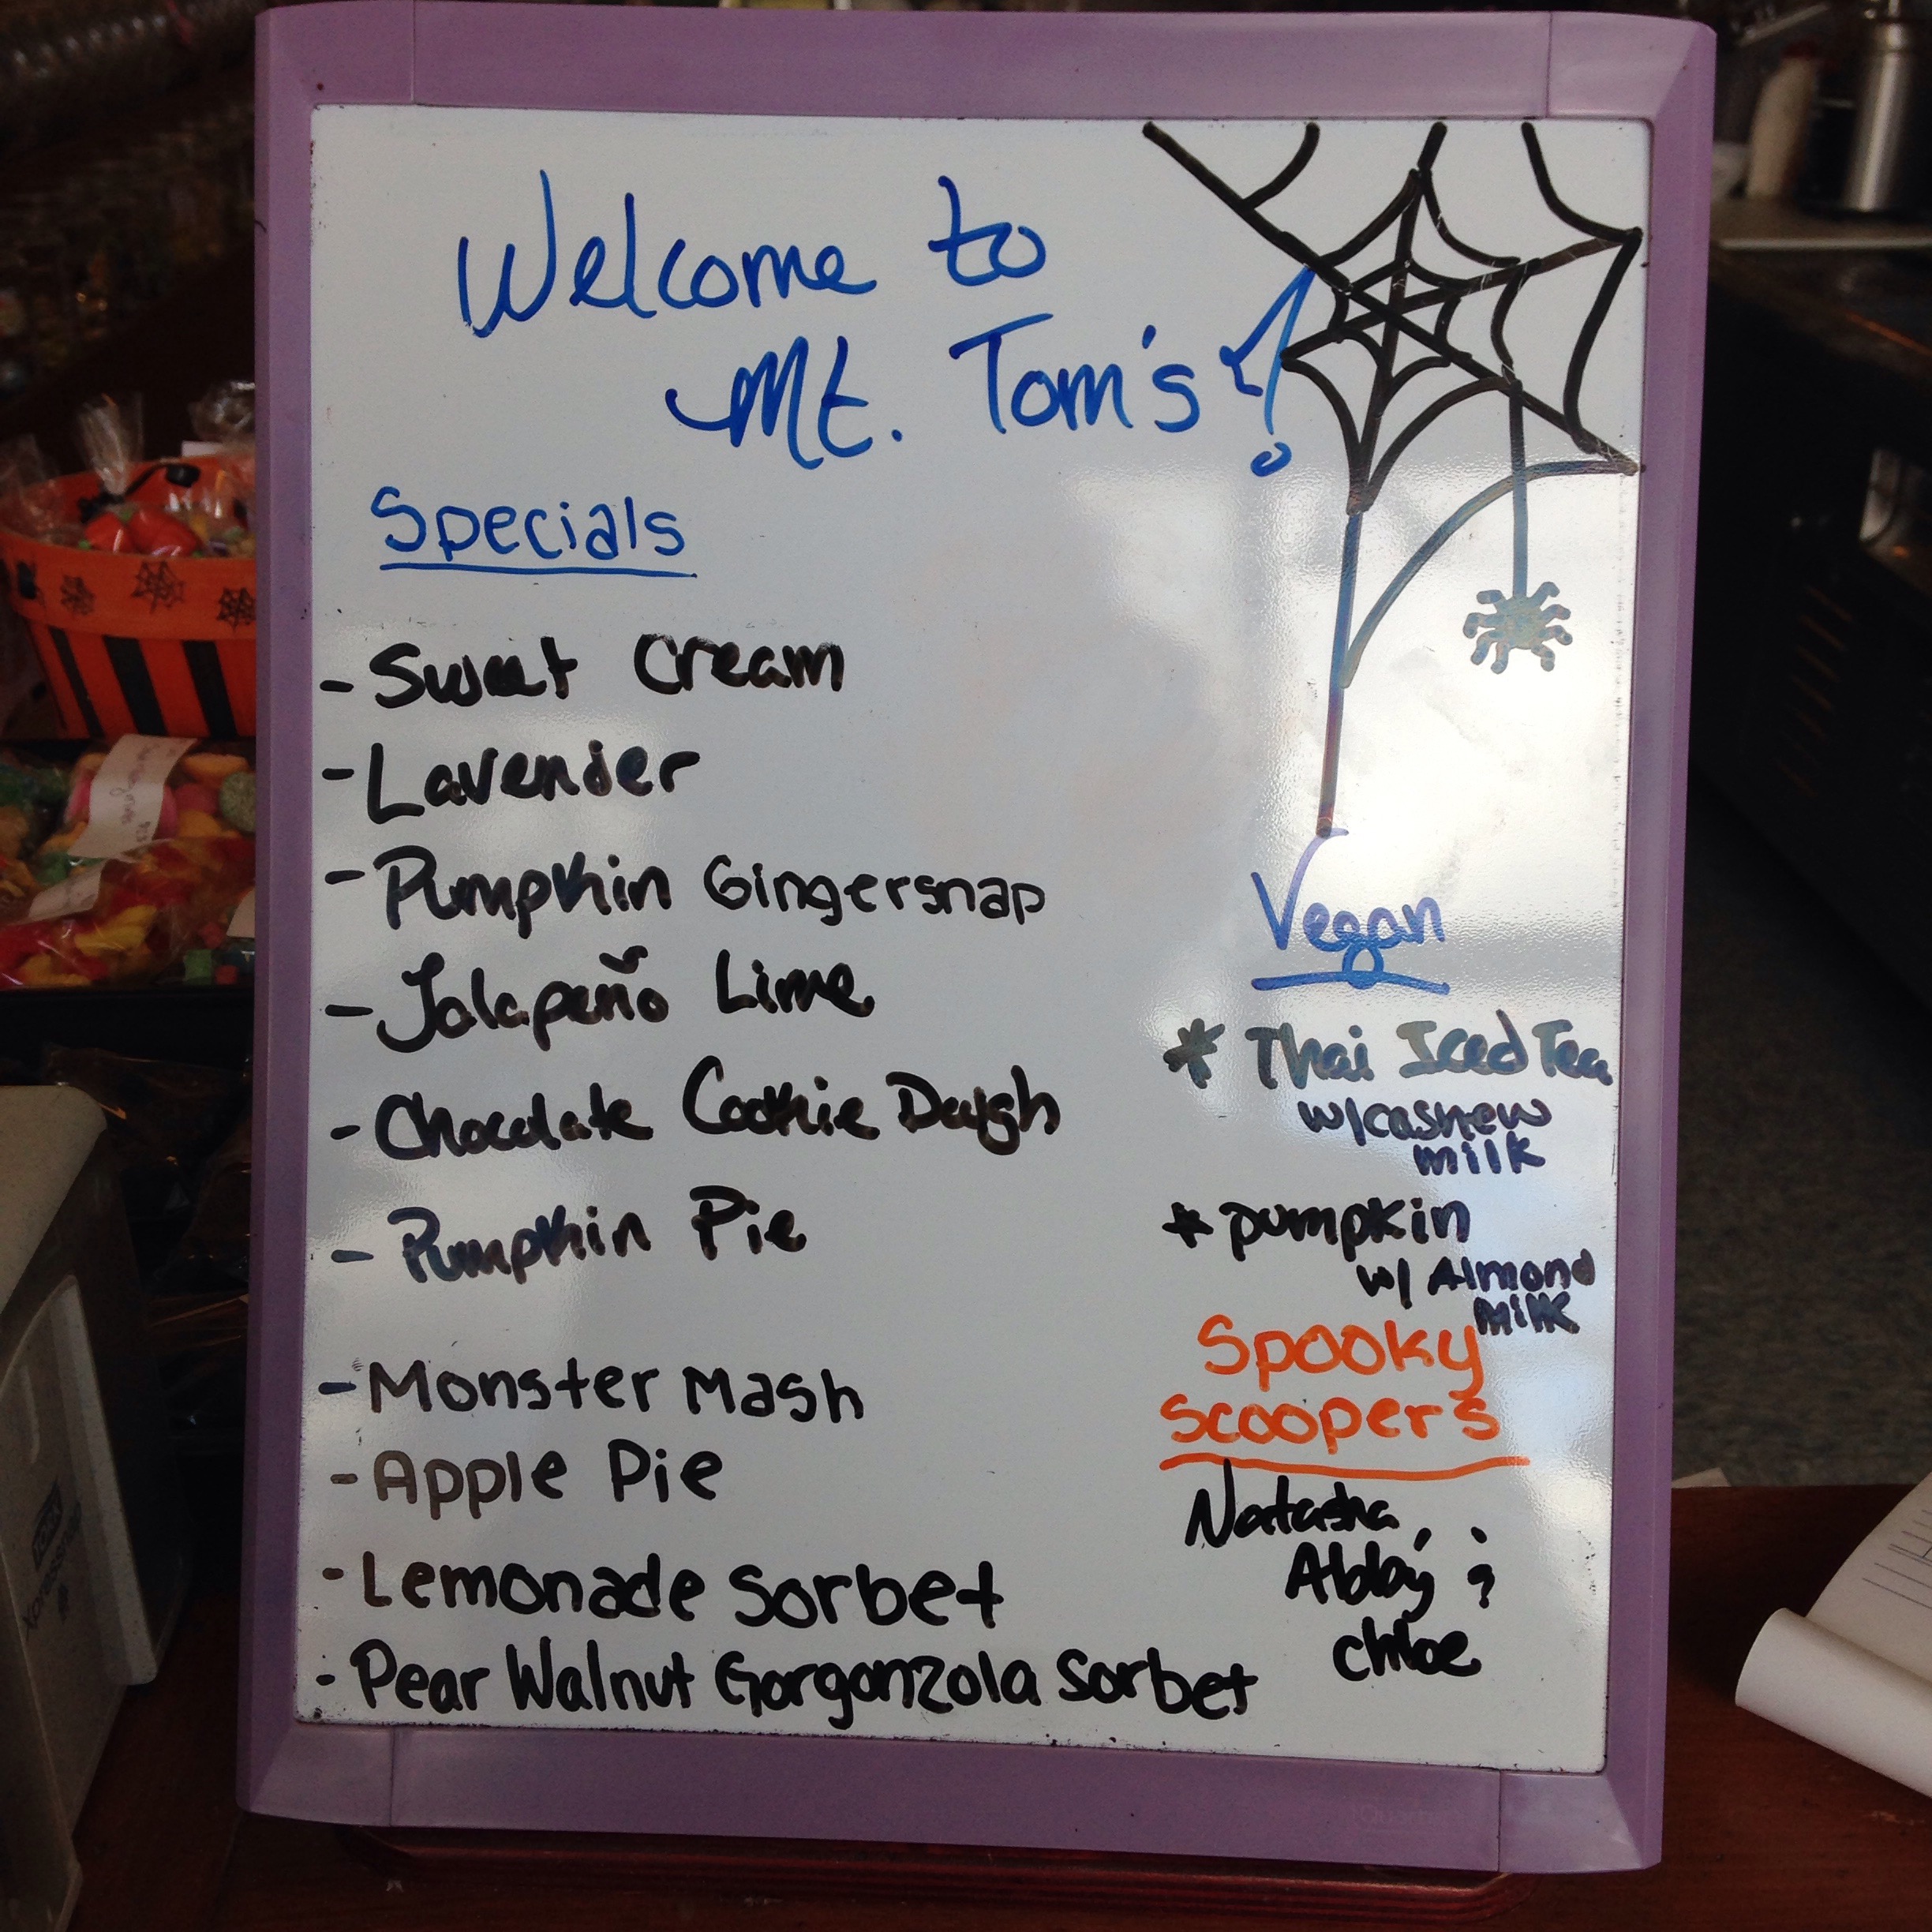 Welcome to
Mt. Tom's!
Specials
- Sweet Cream
- Lavender
- Pumpkin Gingersnap
- Jalapeño Lime
- Chocolate Cookie Dough
- Pumpkin Pie
- Monster Mash
- Apple Pie
- Lemonade Sorbet
- Pear Walnut Gorgonzola Sorbet
Vegan
* Thai Iced Tea
w/cashew
milk
* pumpkin
w/ Almond
Milk
Spooky
scoopers
Natasha,
Abby, &
Chloe
TORK
Xpressnap